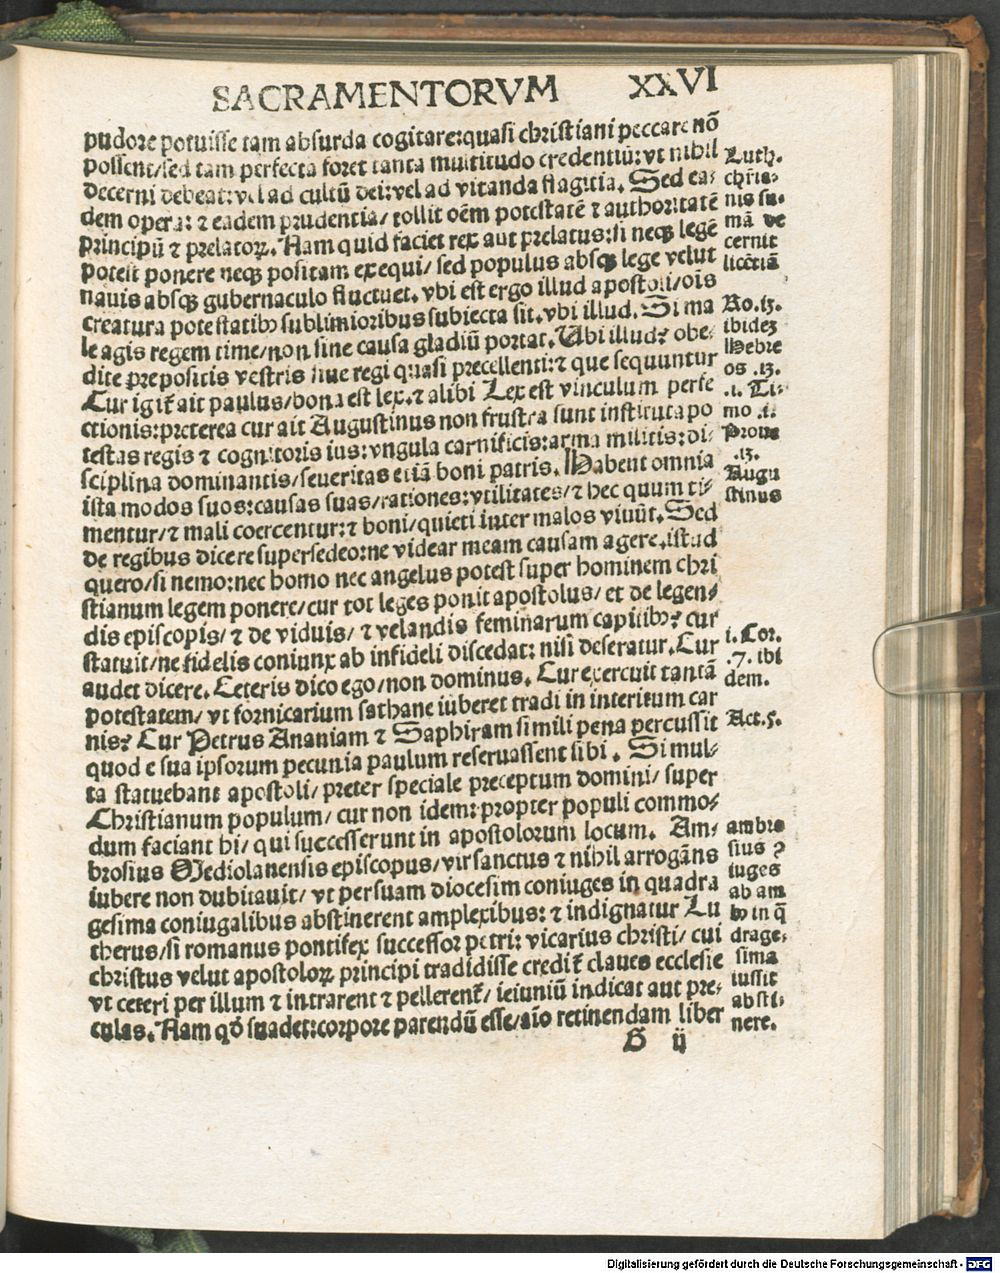 SACRAMENTORVM XXVI
pudore potuisse tam absurda cogitare:quasi christiani peccare nõ
possent/sed tam perfecta foret tanta multitudo credentiũ:vt nihil
decerni debeat:vel ad cultũ dei:vel ad vitanda flagitia. Sed ea⸗
dem opera: ⁊ eadem prudentia/ tollit oẽm potestatẽ ⁊ authoritatẽ
principũ ⁊ prelatoꝝ. Nam quid faciet rex aut prelatus:si neqꝫ legẽ
poteit ponere neqꝫ positam exequi/ sed populus absqꝫ lege velut
nauis absqꝫ gubernaculo fluctuet. vbi est ergo illud apostoli/oĩs
creatura potestatibꝰ sublimioribus subiecta sit. vbi illud. Si ma
le agis regem time/non sine causa gladiũ portat. Ubi illud? obe⸗
dite prepositis vestris siue regi quasi precellenti:⁊ que sequuntur
Cur igit᷑ ait paulus/bona est lex.⁊ alibi Lex est vinculum perfe
ctionis:preterea cur ait Augustinus non frustra sunt instituta po
testas regis ⁊ cognitoris ius:vngula carnificis:arma militis:di⸗
sciplina dominantis/seueritas etiã boni patris. Habent omnia
ista modos suos:causas suas/rationes:vtilitates/⁊ hec quum ti⸗
mentur/⁊ mali coercentur:⁊ boni/quieti inter malos viuũt. Sed
de regibus dicere supersedeo:ne videar meam causam agere.istud
quero/si nemo:nec homo nec angelus potest super hominem chri
stianum legem ponere/cur tot leges ponit apostolus/ et de legen⸗
dis episcopis/ ⁊ de viduis/ ⁊ velandis feminarum capitibꝰ? cur
statuit/ne fidelis coniunx ab infideli discedat: nisi deseratur. Cur
audet dicere. Ceteris dico ego/non dominus. Cur exercuit tantã
potestatem/ vt fornicarium sathane iuberet tradi in interitum car
nis? Cur Petrus Ananiam ⁊ Saphiram simili pena percussit
quod e sua ipsorum pecunia paulum reseruassent sibi. Si mul⸗
ta statuebant apostoli/ preter speciale preceptum domini/ super
Christianum populum/ cur non idem: propter populi commo⸗
dum faciant hi/ qui successerunt in apostolorum locum. Am⸗
brosius Mediolanensis episcopus/ vir sanctus ⁊ nihil arrogãns
iubere non dubitauit/ vt per suam diocesim coniuges in quadra
gesima coniugalibus abstinerent amplexibus: ⁊ indignatur Lu
therus/si romanus pontifex successor petri: vicarius christi/ cui
christus velut apostoloꝝ principi tradidisse credit᷑ claues ecclesie
vt ceteri per illum ⁊ intrarent ⁊ pellerent᷑/ ieiuniũ indicat aut pre⸗
culas. Nam qđ suadet:corpore parendũ esse/aĩo retinendam liber
G ij
Luth.
chr̃ia⸗
nis su⸗
mã de
cernit
licẽtiã
Ro.13.
ibidez
Hebre
os .13.
.1. Ti⸗
mo .1.
Proue
.13.
Augu
stinus
i. Cor.
.7. ibi
dem.
Act.5.
ambro
sius ꝯ
iuges
ab am
bꝰ in q̃
drage⸗
sima
iussit
absti⸗
nere.
Digitalisierung gefördert durch die Deutsche Forschungsgemeinschaft - DFG